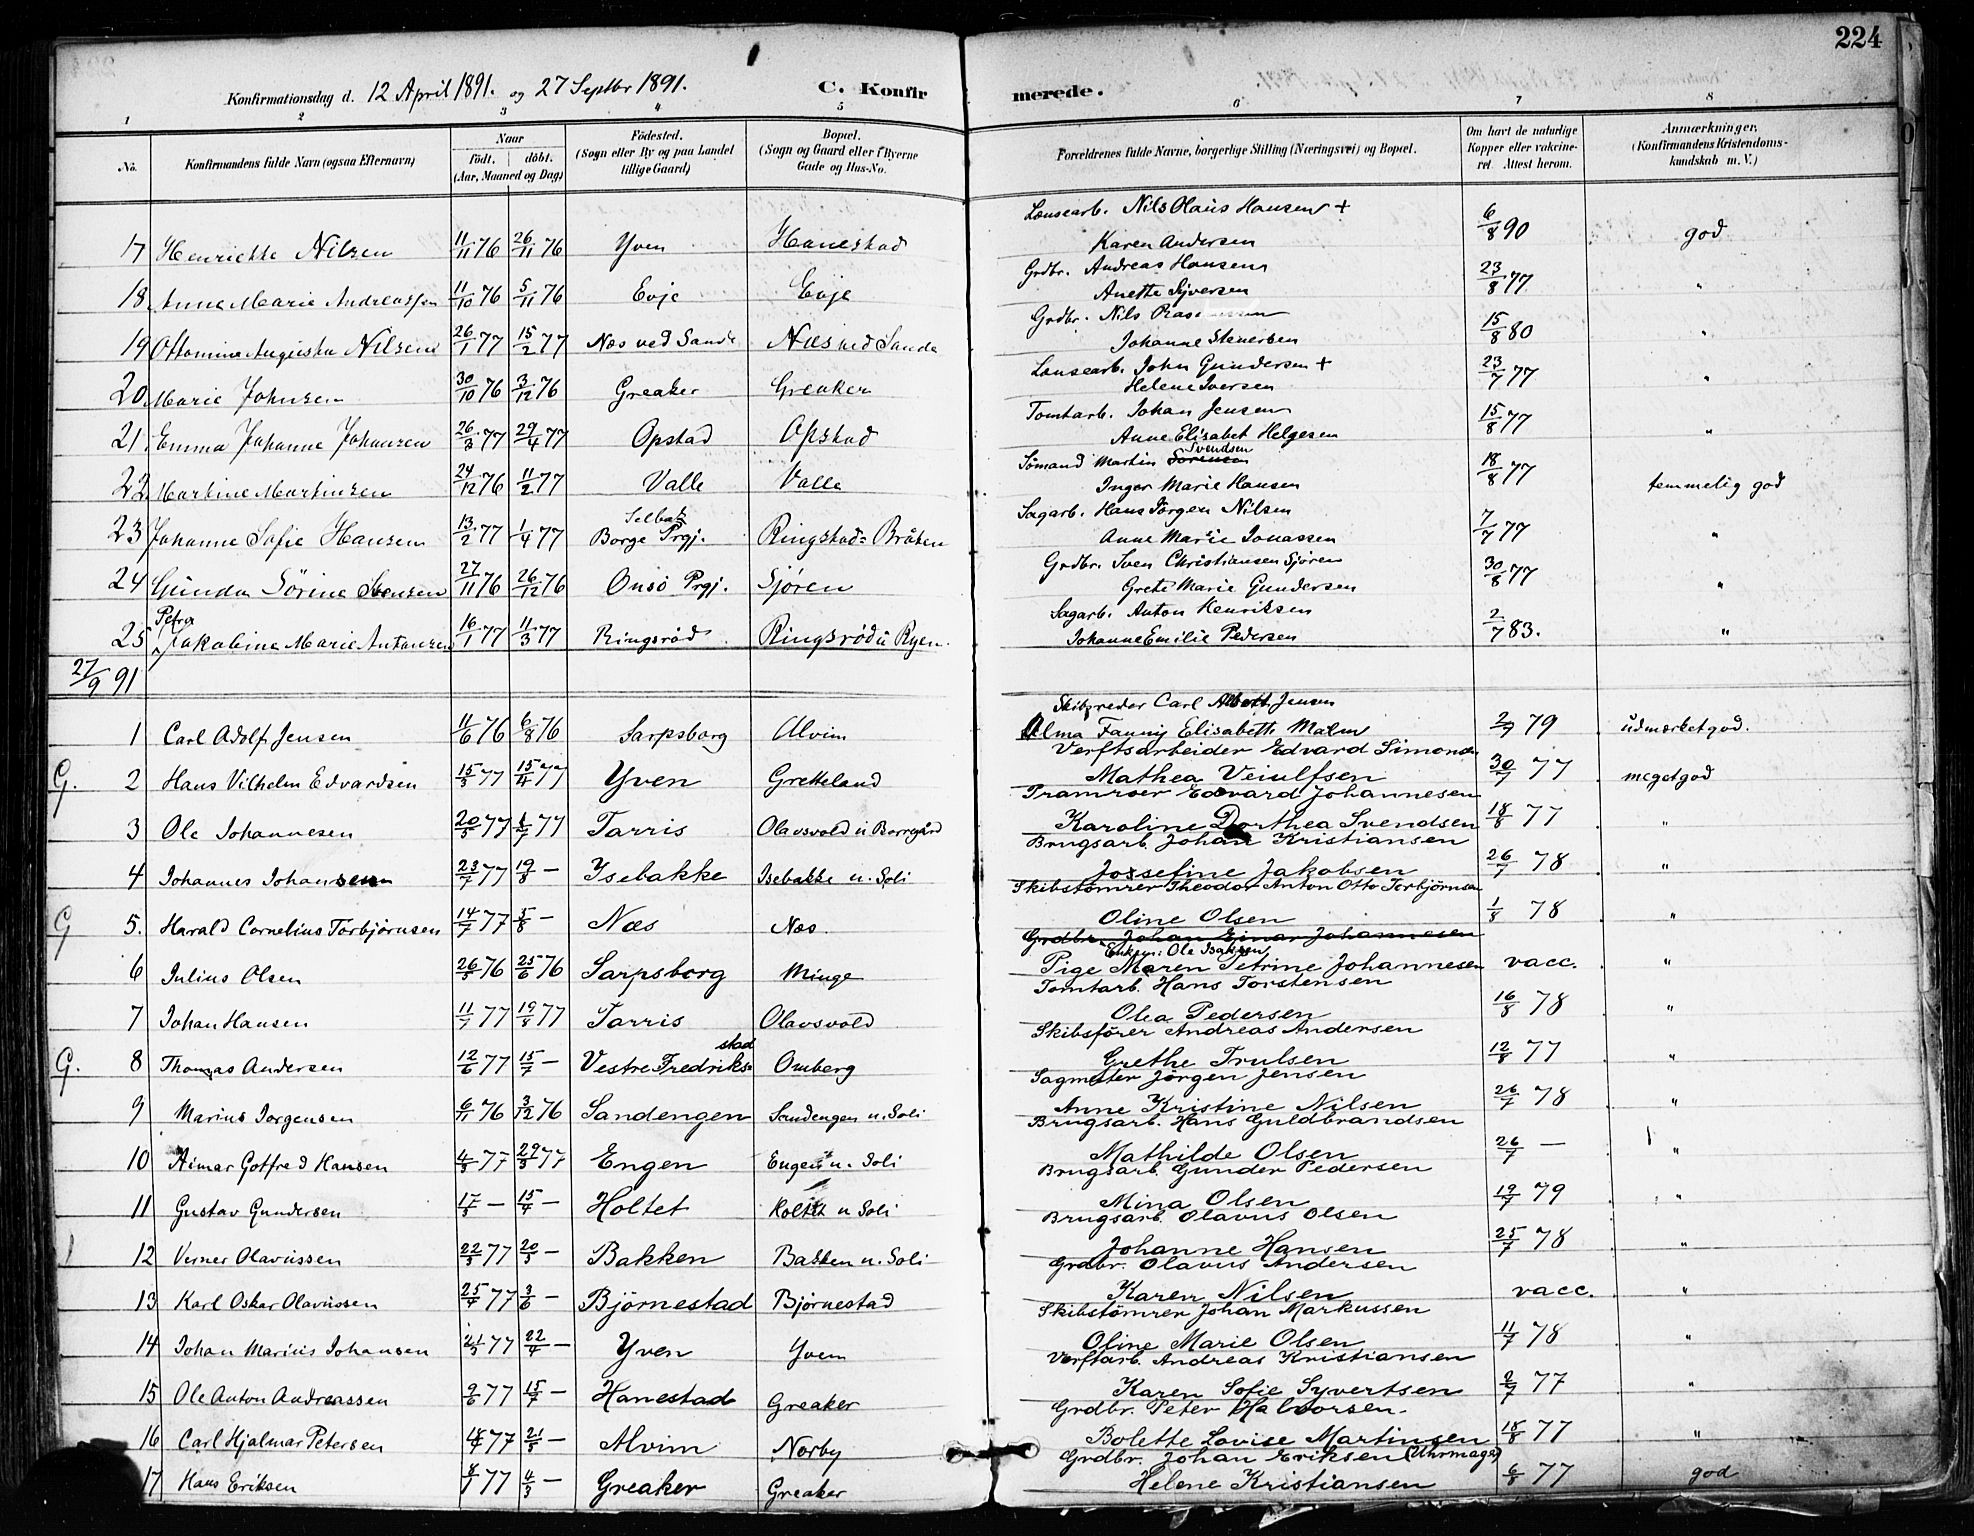 224
Konfirmationsdag d. 12 April 1891. og 27 Septbr 1891. C. Konfirmerede.
1 2 3 4 5 6 7 8
No. Konfirmandens fulde Navn (ogsaa Efternavn) Naar født. døbt. (Aar, Maaned og Dag) Fødested. (Sogn eller By og paa Landet tillige Gaard) Bopæl. (Sogn og Gaard eller i Byerne Gade og Hus-No. Forældrenes fulde Navne, borgerlige Stilling (Næringsvei) og Bopæl. Om havt de naturlige Kopper eller vakcineret. Attest herom. Anmærkninger. (Konfirmandens Kristendomskundskab m. V.)
Lænsearb. Nils Olaus Hansen +
17 Henriette Nilsen 11/11 76 26/11 76 Yven Hanestad Karen Andersen 6/8 90 god
Grdbr. Andreas Hansen
18 Anna Marie Andreassen 11/10 76 5/11 76 Evje Evje Anette Syversen 23/8 77 "
Grdbr. Nils
19 Ottomine Augusta Nilsen 26/1 77 15/2 77 Næs ved Sande Næs ved Sande Johanne Stenersen 15/8 80 "
Lænsearb. John Gundersen +
20 Marie Johnsen 30/10 76 3/12 76 Greaker Greaker Helene Iversen 23/7 77 "
Tomtarb. Johan Jensen
21. Emma Johanne Johansen 26/3 77 29/4 77 Opstad Opstad Anne Elisabet Helgesen 15/8 77 "
Sømand Martin Sørensen Svendsen
22 Martine Martinsen 24/12 76 11/2 77 Valle Valle Inger Marie Hansen 18/8 77 temmelig god
Sagarb. Hans Jørgen Nilsen
23 Johanne Sofie Hansen 13/2 77 1/4 77 Selbak Borge Prgj. Ringstad-Bråten Anne Marie Jonassen 7/7 77 "
Grdbr. Sven Christiansen Sjøren
24 Gunda Sørine Svensen 27/11 76 26/12 76 Onsø Prgj. Sjøren Grete Marie Gundersen 30/8 77 "
Sagarb. Anton Henriksen
25 Petra Jakobine Marie Antonsen 16/1 77 11/3 77 Ringsrød Ringsrød u Ryen. Johanne Emilie Pedersen 2/7 83. "
27/9 91
Skibsreder Carl Albert Jensen
1 Carl Adolf Jensen 11/6 76 6/8 76 Sarpsborg Alvim Alma Fanny Elisabeth Malm 2/7 79 udmærket god.
Verftsarbeider Edvard Simonsen
G. 2 Hans Vilhelm Edvardsen 15/3 77 15/4 77 Yven Gretteland Mathea Veiulfsen 30/7 77 meget god
Pramroer Edvard Johannesen
3 Ole Johannesen 20/5 77 8/7 77 Tarris Olavsvold u Borregård Karoline Dorthea Svendsen 18/8 77 "
Brugsarb. Johan Kristiansen
4 Johannes Johansen 23/7 77 19/8 — Ysebakke Isebakke u. Soli Josefine Jakobsen 26/7 78 "
Skibstømrer Theodor Anton Otto Torbjørnsen
G 5. Harald Cornelius Torbjørnsen 14/7 77 5/8 — Næs Næs. Oline Olsen 1/8 78 "
Grdbr. Johan Einar Johannesen
Enkem: Ole Isaksen
6 Julius Olsen 26/5 76 25/6 76 Sarpsborg Minge Pige Maren Petrine Johannesen vacc. "
Tomtarb. Hans Torstensen
7 Johan Hansen 11/7 77 19/8 77 Tarris Olavsvold Olea Pedersen 16/8 78 "
Skibsfører Andreas Andersen
G. 8 Thomas Andersen 12/6 77 15/7 — Vestre Fredriksstad Omberg Grethe Trulsen 12/8 77 "
Sagmester Jørgen Jensen
9 Marius Jørgensen 6/11 76 3/12 76 Sandengen Sandengen u. Soli Anne Kristine Nilsen 26/7 78 "
Brugsarb. Hans Guldbrandsen
10 Aimar Gotfred Hansen 4/3 77 29/3 77 Engen Engen u. Soli Mathilde Olsen 26/7 — "
Brugsarb. Gunder Pedersen
11 Gustav Gundersen 17/3 — 15/4 — Holtet Holtet u Soli Mina Olsen 19/7 79 "
Brugsarb. Olavus Olsen
12 Verner Olavussen 22/3 77 20/5 — Bakken Bakken u. Soli Johanne Hansen 25/7 78 "
Grdbr. Olavus Andersen
13 Karl Oskar Olavussen 25/4 77 3/6 — Bjørnestad Bjørnestad Karen Nilsen vacc. "
Skibstømrer Johan Markussen
14 Johan Marius Johansen 21/3 77 22/4 — Yven Yven Oline Marie Olsen 11/7 78 "
Verftarb. Andreas Kristiansen
15 Ole Anton Andreassen 9/6 77 15/7 — Hanestad Greaker Karen Sofie Syvertsen 2/7 77 "
Grdbr. Peter Halvorsen
16 Carl Hjalmar Petersen 18/4 77 21/5 — Alvim Nørby Bolette Lovise Martinsen 18/8 77 "
Grdbr. Johan Eriksen (Uhrmager)
17 Hans Eriksen 77 4/3 — Greaker Greaker Helene Kristiansen 6/8 77 god